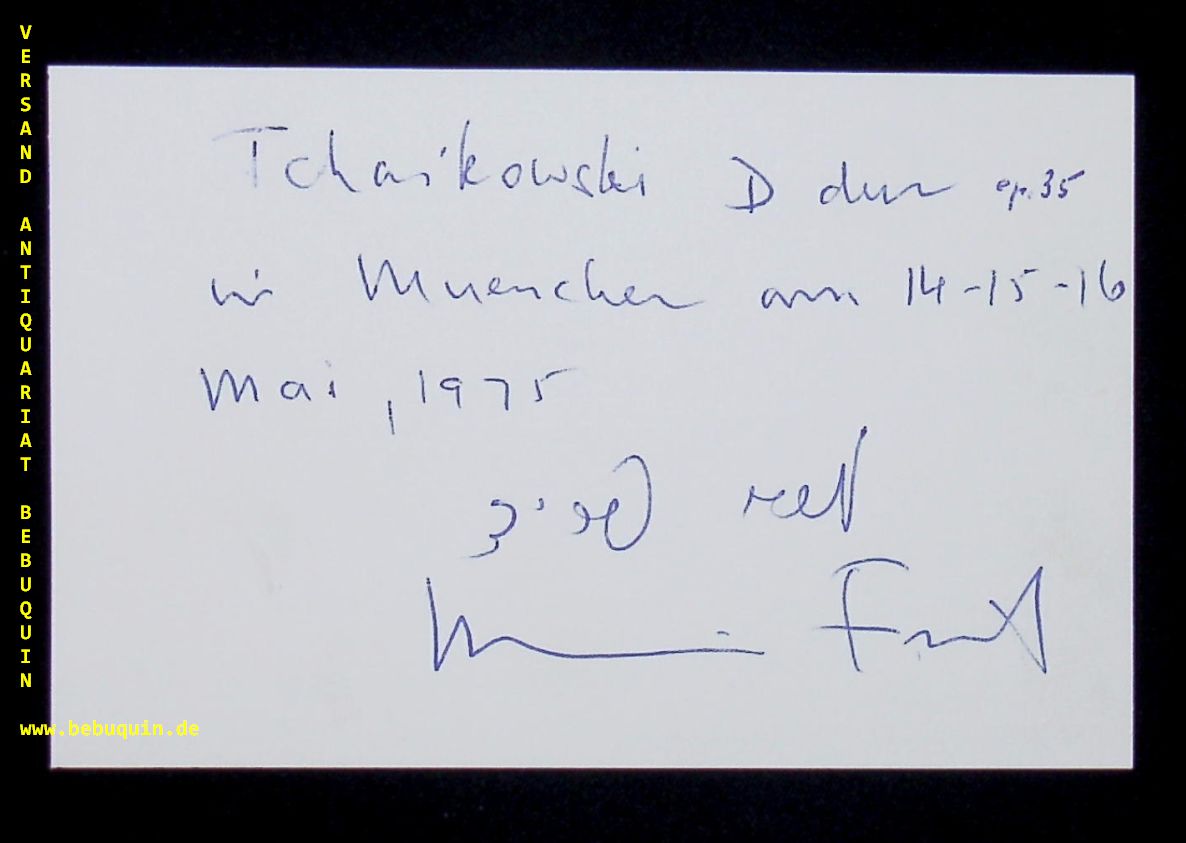 VERSAND ANTIQUARIAT BEBUQUIN
www.bebuquin.de
Tchaikowski D dur op. 35
in Muenchen am 14-15-16
Mai, 1975
מרים פריד
Miriam Fried